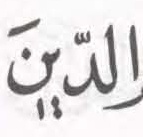 الدِّينَ